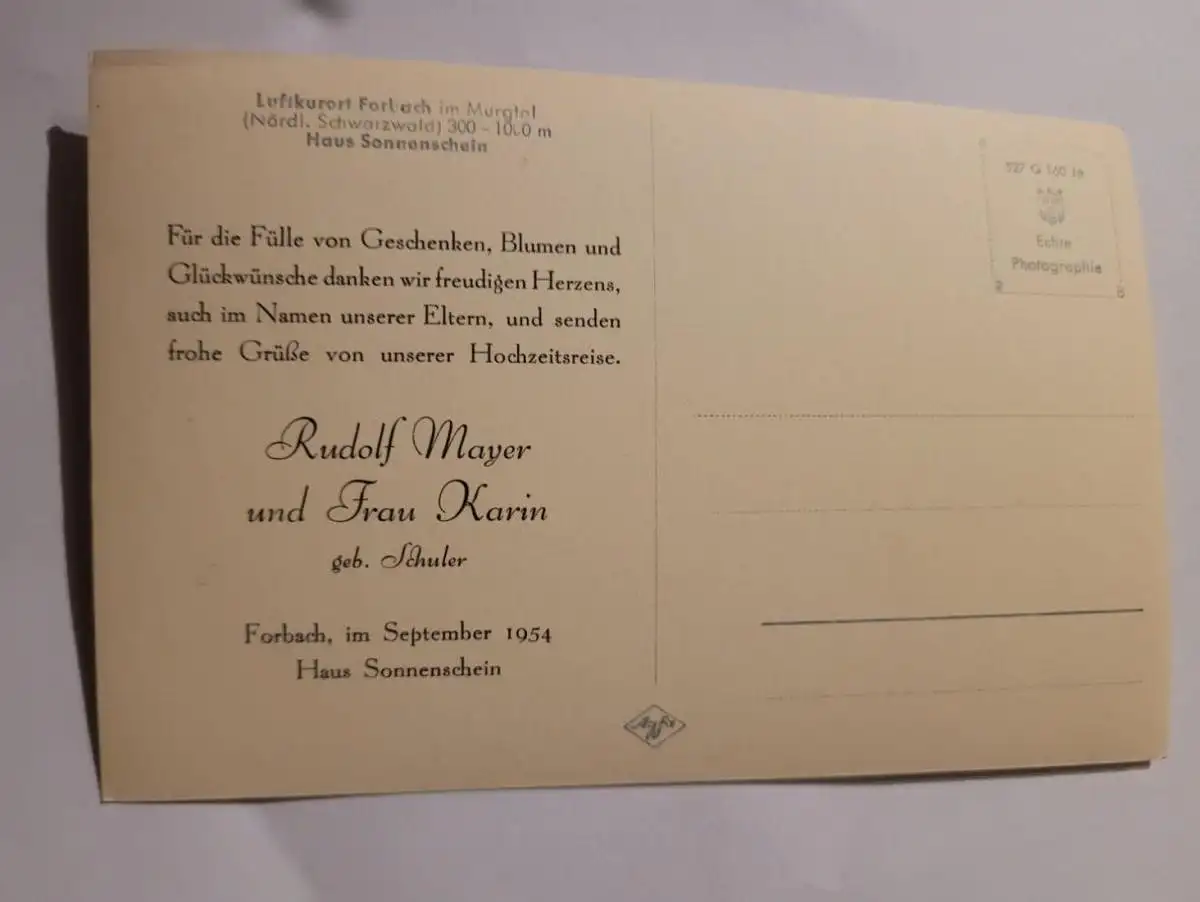 Luftkurort Forbach im Murgtal
(Nördl. Schwarzwald) 300 - 1000 m
Haus Sonnenschein
Für die Fülle von Geschenken, Blumen und
Glückwünsche danken wir freudigen Herzens,
auch im Namen unserer Eltern, und senden
frohe Grüße von unserer Hochzeitsreise.
Rudolf Mayer
und Frau Karin
geb. Schuler
Forbach, im September 1954
Haus Sonnenschein
Echte
Photographie